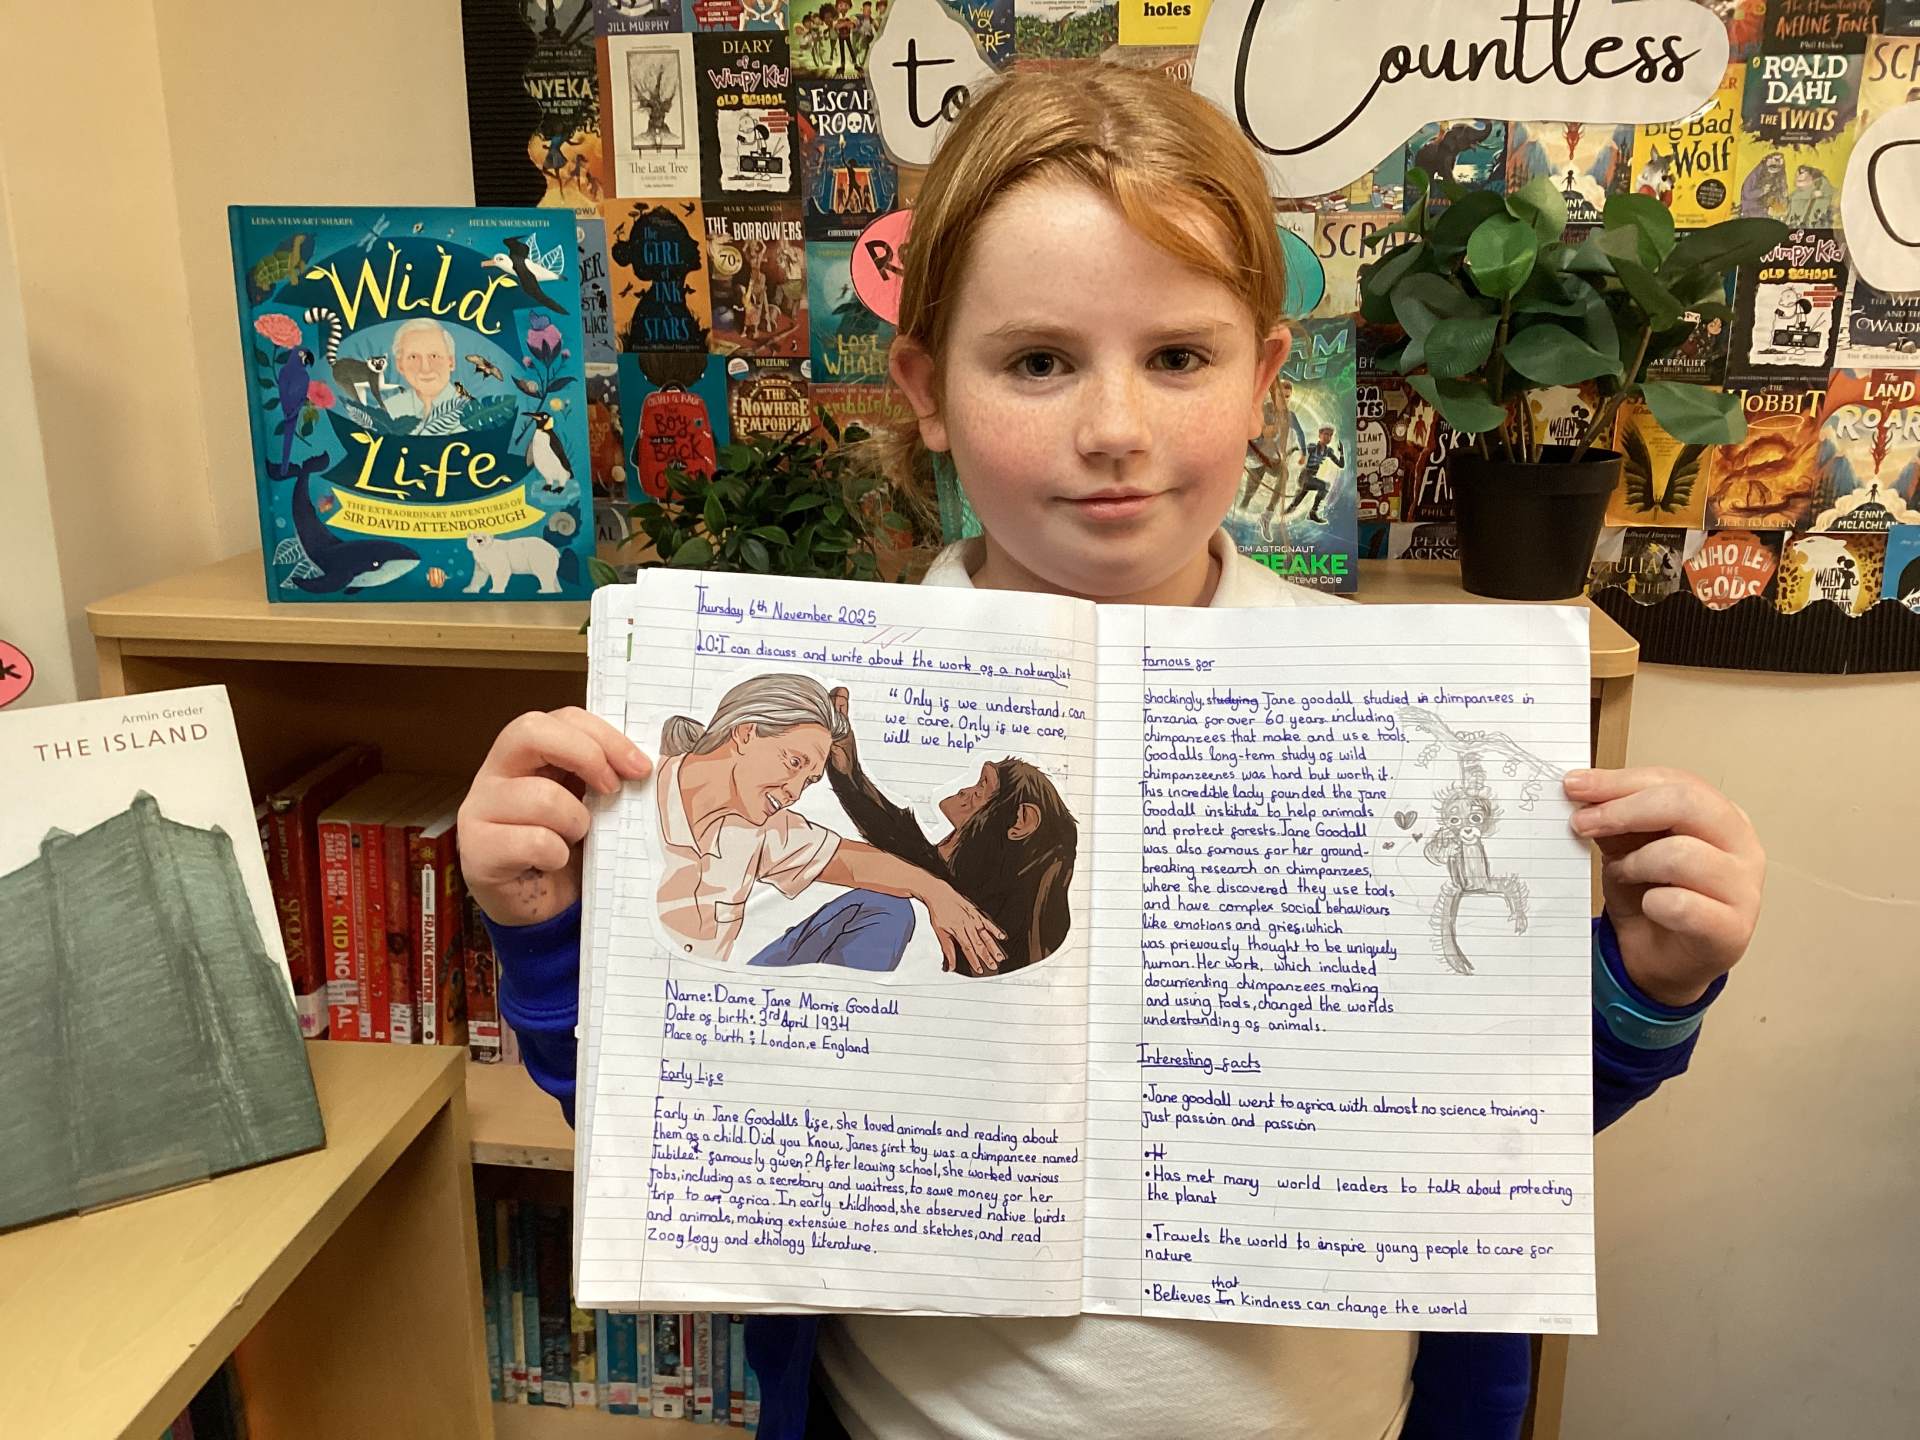 Thursday 6th November 2025
LO: I can discuss and write about the work of a naturalist
"Only if we understand, can
we care. Only if we care,
will we help"
Name: Dame Jane Morris Goodall
Date of birth: 3rd April 1934
Place of birth: London, England
Early Life
Early in Jane Goodalls life, she loved animals and reading about
them as a child. Did you know, Janes first toy was a chimpanzee named
Jubilee? famously given? After leaving school, she worked various
jobs, including as a secretary and waitress, to save money for her
trip to africa. In early childhood, she observed native birds
and animals, making extensive notes and sketches, and read
Zoology and ethology literature.
Famous for
shockingly, studying Jane goodall studied in chimpanzees in
Tanzania for over 60 years including
chimpanzees that make and use tools.
Goodalls long-term study of wild
chimpanzeenes was hard but worth it.
This incredible lady founded the Jane
Goodall institute to help animals
and protect forests. Jane Goodall
was also famous for her ground-
breaking research on chimpanzees,
where she discovered they use tools
and have complex social behaviours
like emotions and grief, which
was prievously thought to be uniquely
human. Her work, which included
documenting chimpanzees making
and using tools, changed the worlds
understanding of animals.
Interesting facts
•Jane goodall went to africa with almost no science training-
Just passion and passion
•H
•Has met many world leaders to talk about protecting
the planet
•Travels the world to inspire young people to care for
nature
that
•Believes In kindness can change the world
LEISA STEWART-SHARPE
HELEN SHOESMITH
Wild
Life
THE EXTRAORDINARY ADVENTURES OF
SIR DAVID ATTENBOROUGH
Armin Greder
THE ISLAND
to
Countless
JILL MURPHY
The Last Tree
DIARY
of a
Wimpy Kid
OLD SCHOOL
Jeff Kinney
ESCAPE
ROOM
holes
THE
GIRL
of
INK
&
STARS
MARY NORTON
THE BORROWERS
THE
NOWHERE
EMPORIUM
ROALD
DAHL
THE TWITS
Big Bad
Wolf
Wimpy Kid
OLD SCHOOL
HOBBIT
J.R.R. TOLKIEN
The
LAND
of
ROAR
JENNY
MCLACHLAN
WHO LET
THE
GODS
Steve Cole
KID NORMAL
FRANK COTTRELL